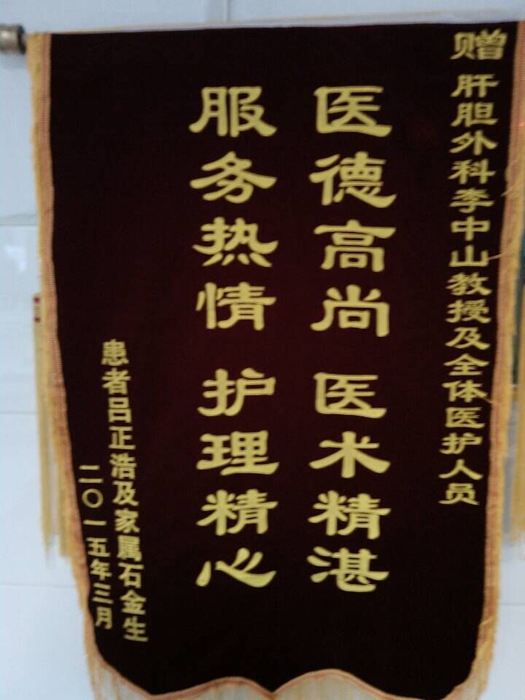 赠肝胆外科李中山教授及全体医护人员
医德高尚 医术精湛
服务热情 护理精心
患者吕正浩及家属石金生
二〇一五年三月